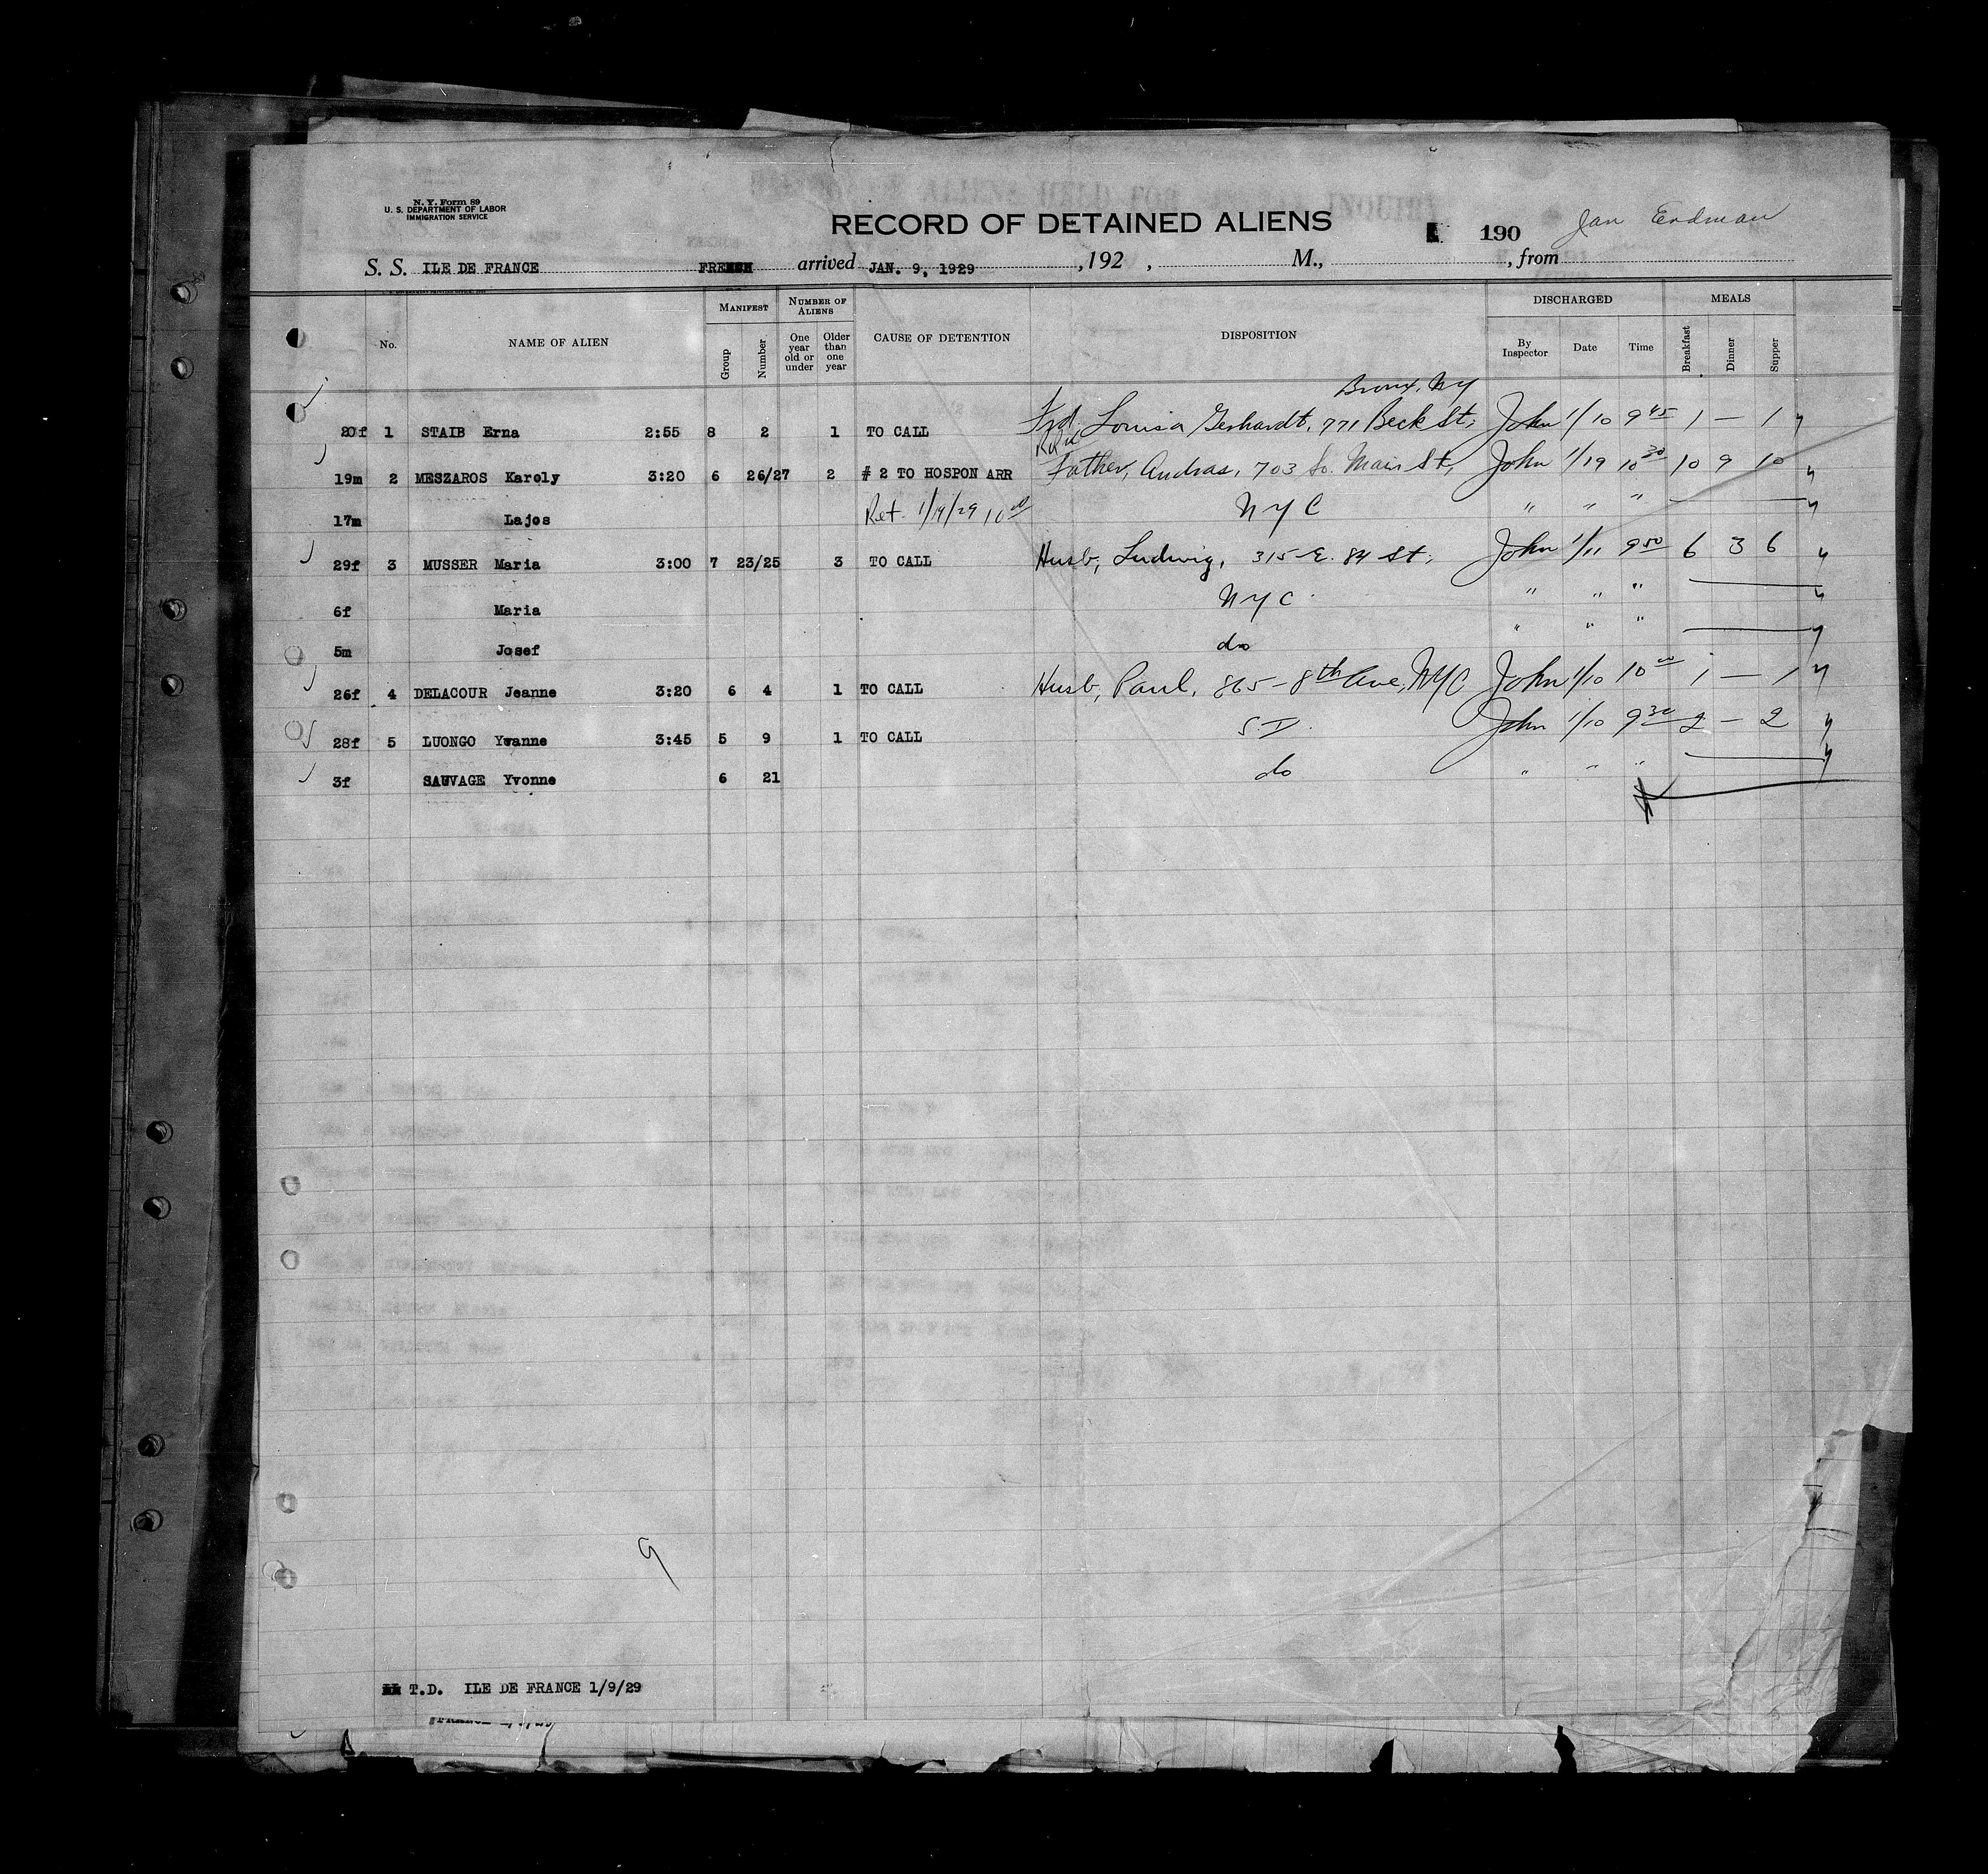 N. Y. Form 89
U. S. DEPARTMENT OF LABOR
IMMIGRATION SERVICE
RECORD OF DETAINED ALIENS
190 Jan Erdman
S. S. ILE DE FRANCE FRENCH arrived JAN. 9, 1929, 192 , M., , from
No. NAME OF ALIEN MANIFEST Group Number NUMBER OF ALIENS One year old or under Older than one year CAUSE OF DETENTION DISPOSITION DISCHARGED By Inspector Date Time MEALS Breakfast Dinner Supper
Bronx, NY
20f 1 STAIB Erna 2:55 8 2 1 TO CALL Frd Louisa Gerhardt, 771 Beck St, John 1/10 9 45 1 — 1
19m 2 MESZAROS Karoly 3:20 6 26/27 2 # 2 TO HOSPON ARR Father, Andras, 703 So. Main St, John 1/19 10 30 10 9 10
17m Lajos Ret. 1/19/29 10 NYC " " "
29f 3 MUSSER Maria 3:00 7 23/25 3 TO CALL Husb, Ludwig, 315 E. 84 St, John 1/11 9 50 6 3 6
6f Maria NYC " " "
5m Josef do " " "
26f 4 DELACOUR Jeanne 3:20 6 4 1 TO CALL Husb, Paul, 865 - 8th Ave, NYC John 1/10 10 00 1 — 1
28f 5 LUONGO Yvanne 3:45 5 9 1 TO CALL S.I. John 1/10 9 30 2 — 2
3f SAUVAGE Yvonne 6 21 do " " "
9
T.D. ILE DE FRANCE 1/9/29